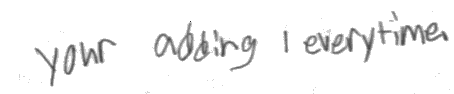 your adding 1 everytime.